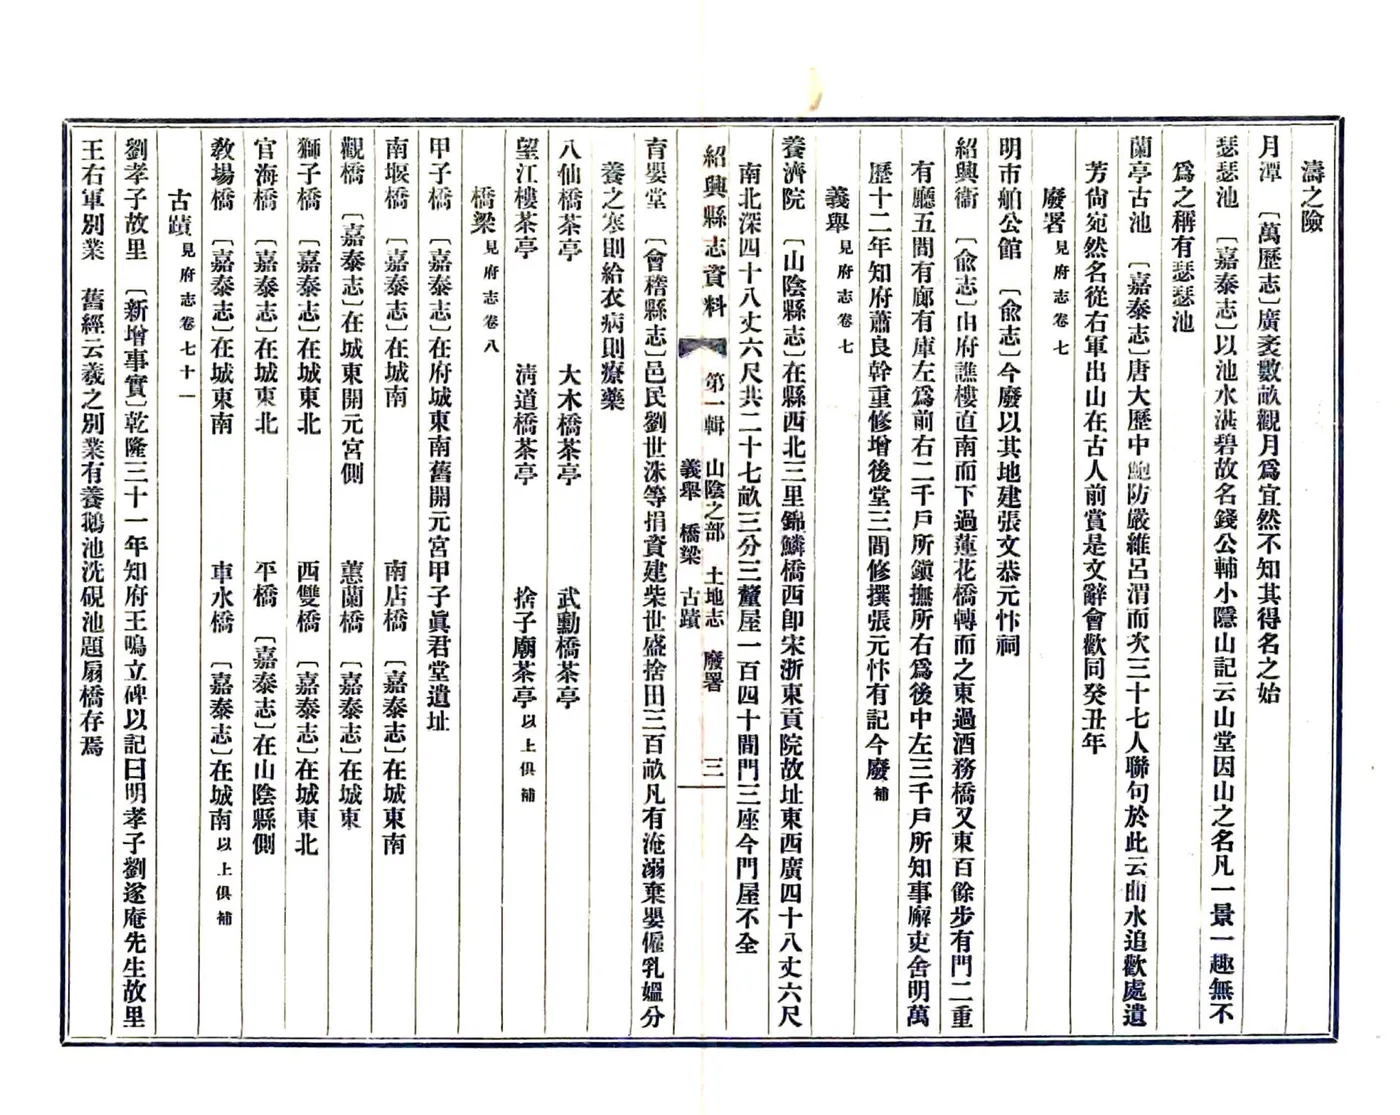 濤之險
月潭　〔萬歷志〕廣袤數畝觀月爲宜然不知其得名之始
瑟瑟池　〔嘉泰志〕以池水湛碧故名錢公輔小隱山記云山堂因山之名凡一景一趣無不
爲之稱有瑟瑟池
蘭亭古池　〔嘉泰志〕唐大歷中鮑防嚴維呂渭而次三十七人聯句於此云曲水追歡處遺
芳尙宛然名從右軍出山在古人前賞是文辭會歡同癸丑年
廢署見府志卷七
明市舶公館　〔兪志〕今廢以其地建張文恭元忭祠
紹興衞　〔兪志〕由府譙樓直南而下過蓮花橋轉而之東過酒務橋又東百餘步有門二重
有廳五間有廊有庫左爲前右二千戶所鎭撫所右爲後中左三千戶所知事廨吏舍明萬
歷十二年知府蕭良幹重修增後堂三間修撰張元忭有記今廢補
義舉見府志卷七
養濟院　〔山陰縣志〕在縣西北三里錦鱗橋西卽宋浙東貢院故址東西廣四十八丈六尺
南北深四十八丈六尺共二十七畝三分三釐屋一百四十間門三座今門屋不全
紹興縣志資料　第一輯　山陰之部　土地志　廢署　三
義舉　橋梁　古蹟
育嬰堂　〔會稽縣志〕邑民劉世洙等捐資建柴世盛捨田三百畝凡有淹溺棄嬰僱乳媼分
養之寒則給衣病則療藥
八仙橋茶亭　大木橋茶亭　武勳橋茶亭
望江樓茶亭　淸道橋茶亭　捨子廟茶亭以上俱補
橋梁見府志卷八
甲子橋　〔嘉泰志〕在府城東南舊開元宮甲子眞君堂遺址
南堰橋　〔嘉泰志〕在城南　南店橋　〔嘉泰志〕在城東南
觀橋　〔嘉泰志〕在城東開元宮側　蕙蘭橋　〔嘉泰志〕在城東
獅子橋　〔嘉泰志〕在城東北　西雙橋　〔嘉泰志〕在城東北
官海橋　〔嘉泰志〕在城東北　平橋　〔嘉泰志〕在山陰縣側
敎場橋　〔嘉泰志〕在城東南　車水橋　〔嘉泰志〕在城南以上俱補
古蹟見府志卷七十一
劉孝子故里　〔新增事實〕乾隆三十一年知府王鳴立碑以記曰明孝子劉遂庵先生故里
王右軍別業　舊經云羲之別業有養鵝池洗硯池題扇橋存焉